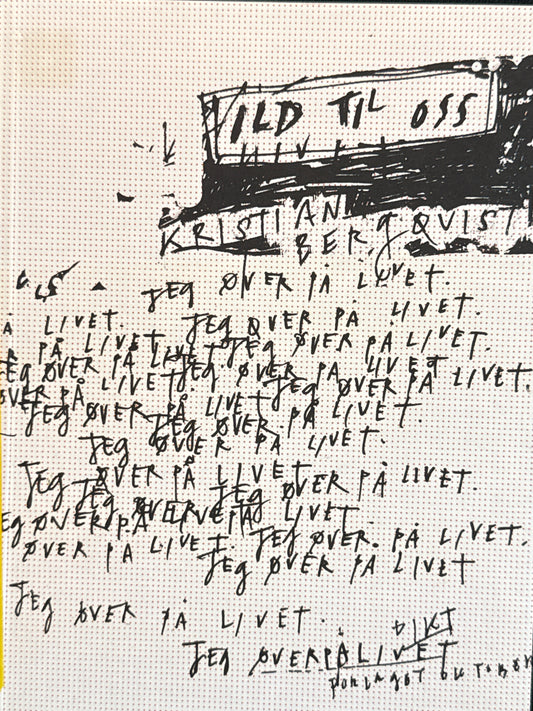 ILD TIL OSS
KRISTIAN
BERgQVIST
JEg ØVER PÅ LIVET.
Å LIVET. JEg ØVER PÅ LIVET.
R PÅ LIVET JEg ØVER PÅ LIVET.
Eg ØVER PÅ LIVET. JEg ØVER PÅ LIVET
ØVER PÅ LIVET. JEg ØVER PÅ LIVET.
JEg ØVER PÅ LIVET. JEg ØVER PÅ LIVET.
JEg ØVER PÅ LIVET.
JEg ØVER PÅ LIVET JEg ØVER PÅ LIVET.
JEg ØVER PÅ LIVET
Eg ØVER PÅ LIVET
ØVER PÅ LIVET. JEg ØVER PÅ LIVET.
JEg ØVER PÅ LIVET
JEg ØVER PÅ LIVET.
DIKT
JEg ØVER PÅ LIVET
FORLAGET OKTOBER